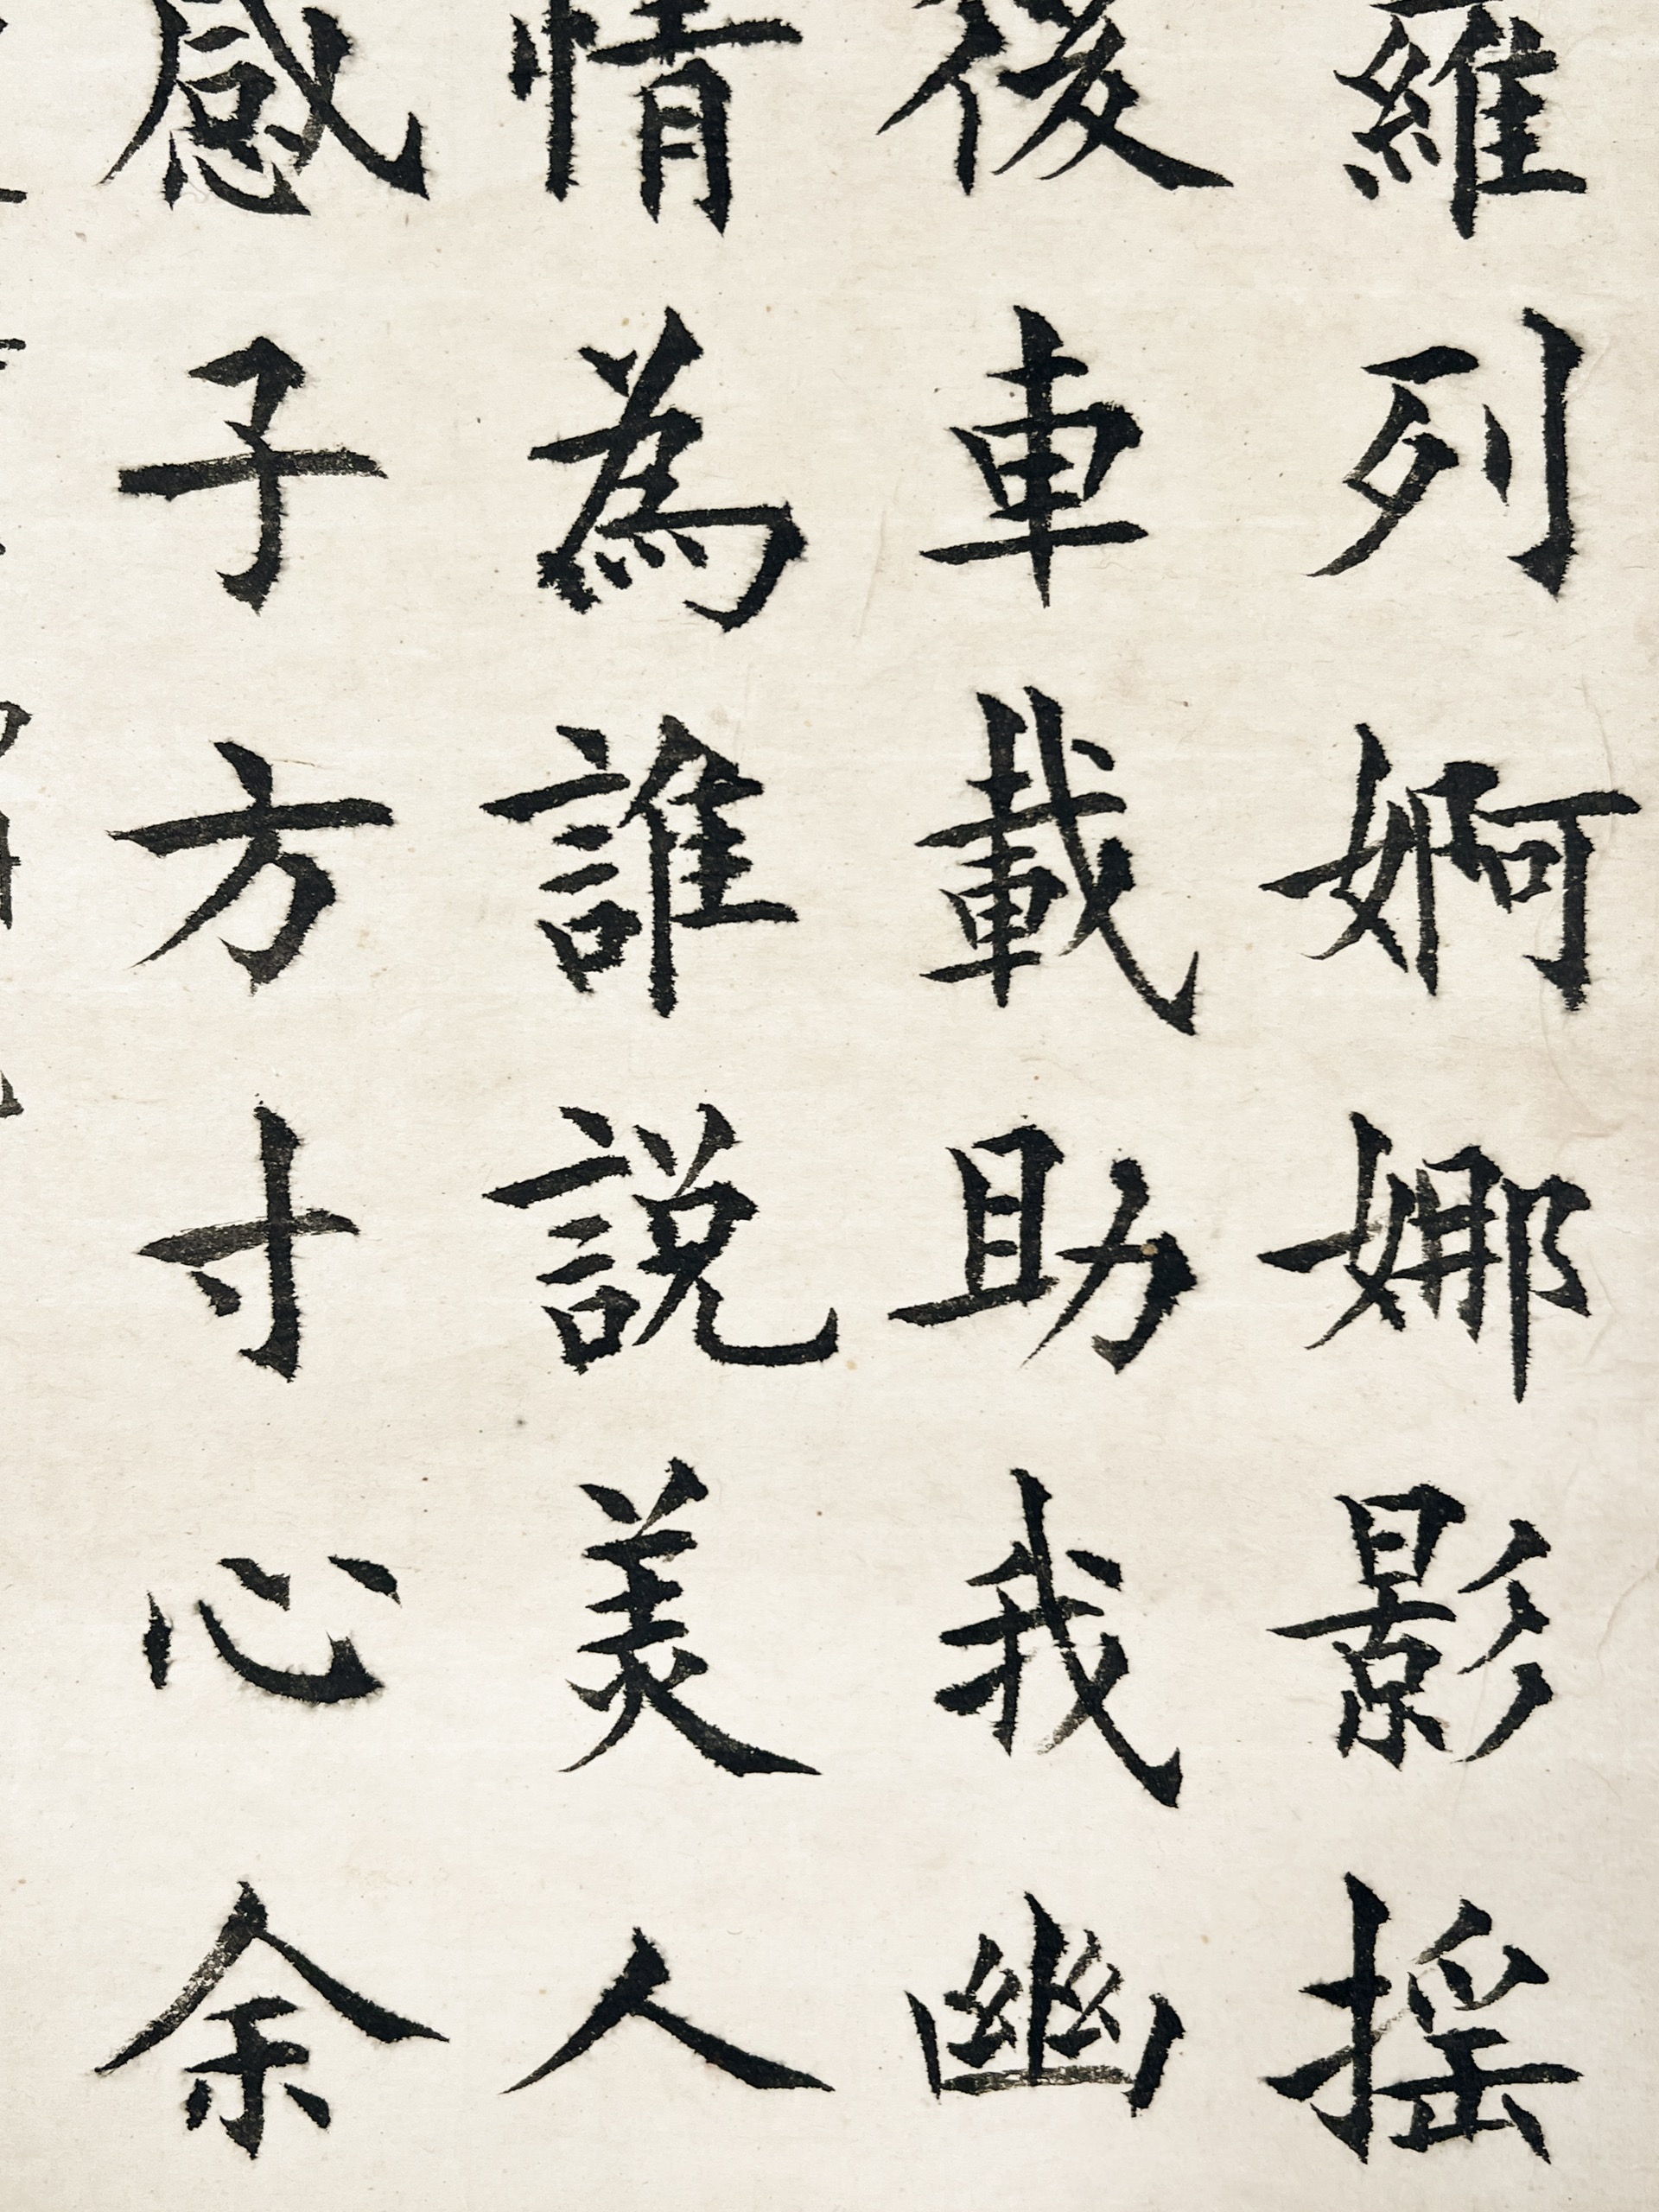 羅列婀娜影搖
後車載助我幽
情為誰説美人
感子方寸心余